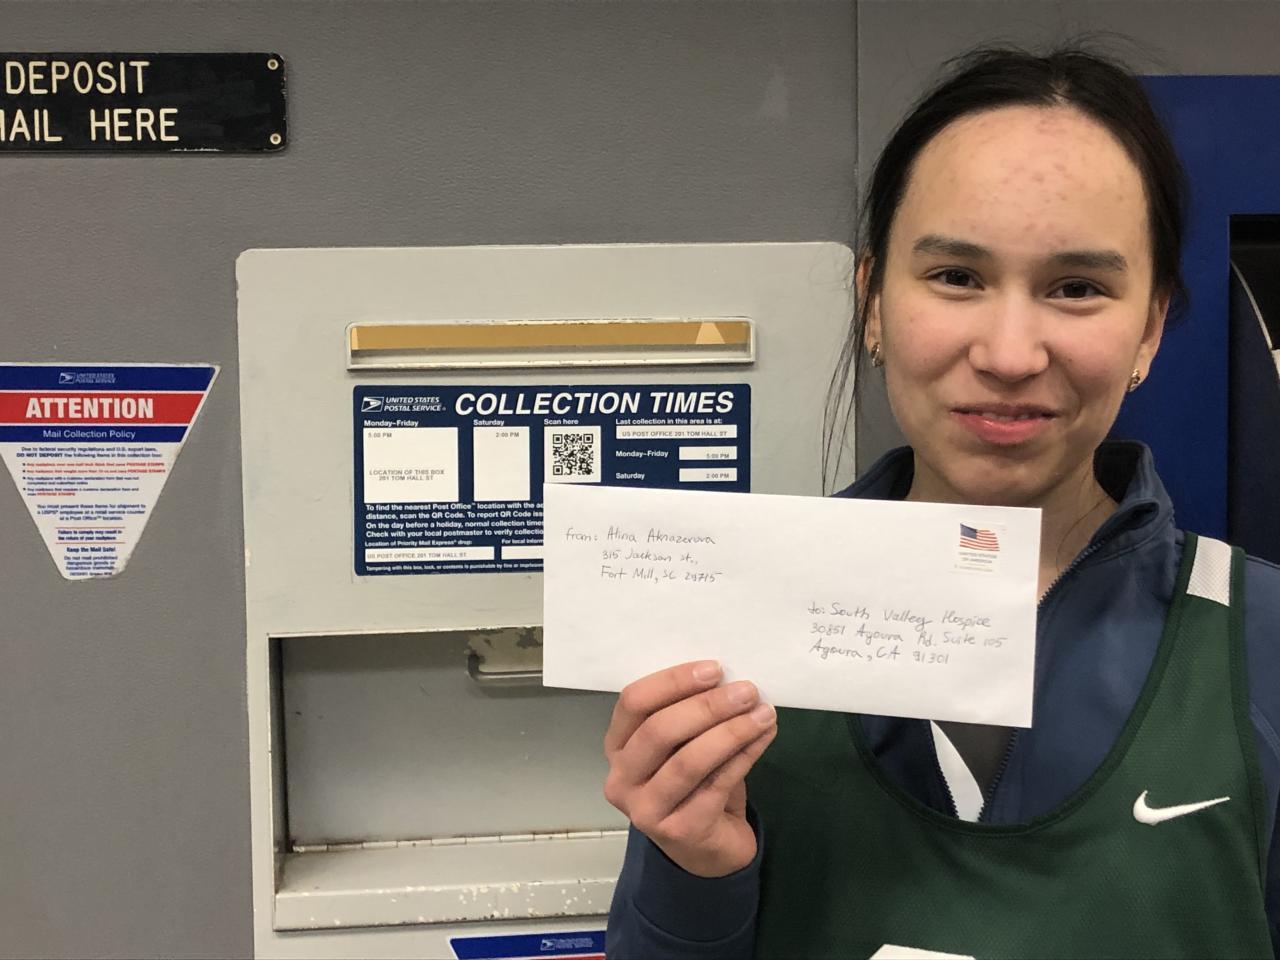 DEPOSIT
MAIL HERE
UNITED STATES
POSTAL SERVICE
ATTENTION
Mail Collection Policy
Due to federal security regulations and U.S. export laws,
DO NOT DEPOSIT the following items in this collection box:
Keep the Mail Safe!
UNITED STATES
POSTAL SERVICE®
COLLECTION TIMES
Monday–Friday
5:00 PM
LOCATION OF THIS BOX
201 TOM HALL ST
Saturday
2:00 PM
Scan here
Last collection in this area is at:
US POST OFFICE 201 TOM HALL ST
Monday–Friday 5:00 PM
Saturday 2:00 PM
To find the nearest Post Office™ location with the
distance, scan the QR Code. To report QR Code
On the day before a holiday, normal collection times
Check with your local postmaster to verify
Location of Priority Mail Express® drop:
US POST OFFICE 201 TOM HALL ST
For local
Tampering with this box, lock, or contents is punishable by fine or
from: Alina Aknazarova
315 Jackson st.,
Fort Mill, SC 29715
UNITED STATES
OF AMERICA
to: South Valley Hospice
30851 Agoura Rd. Suite 105
Agoura, CA 91301